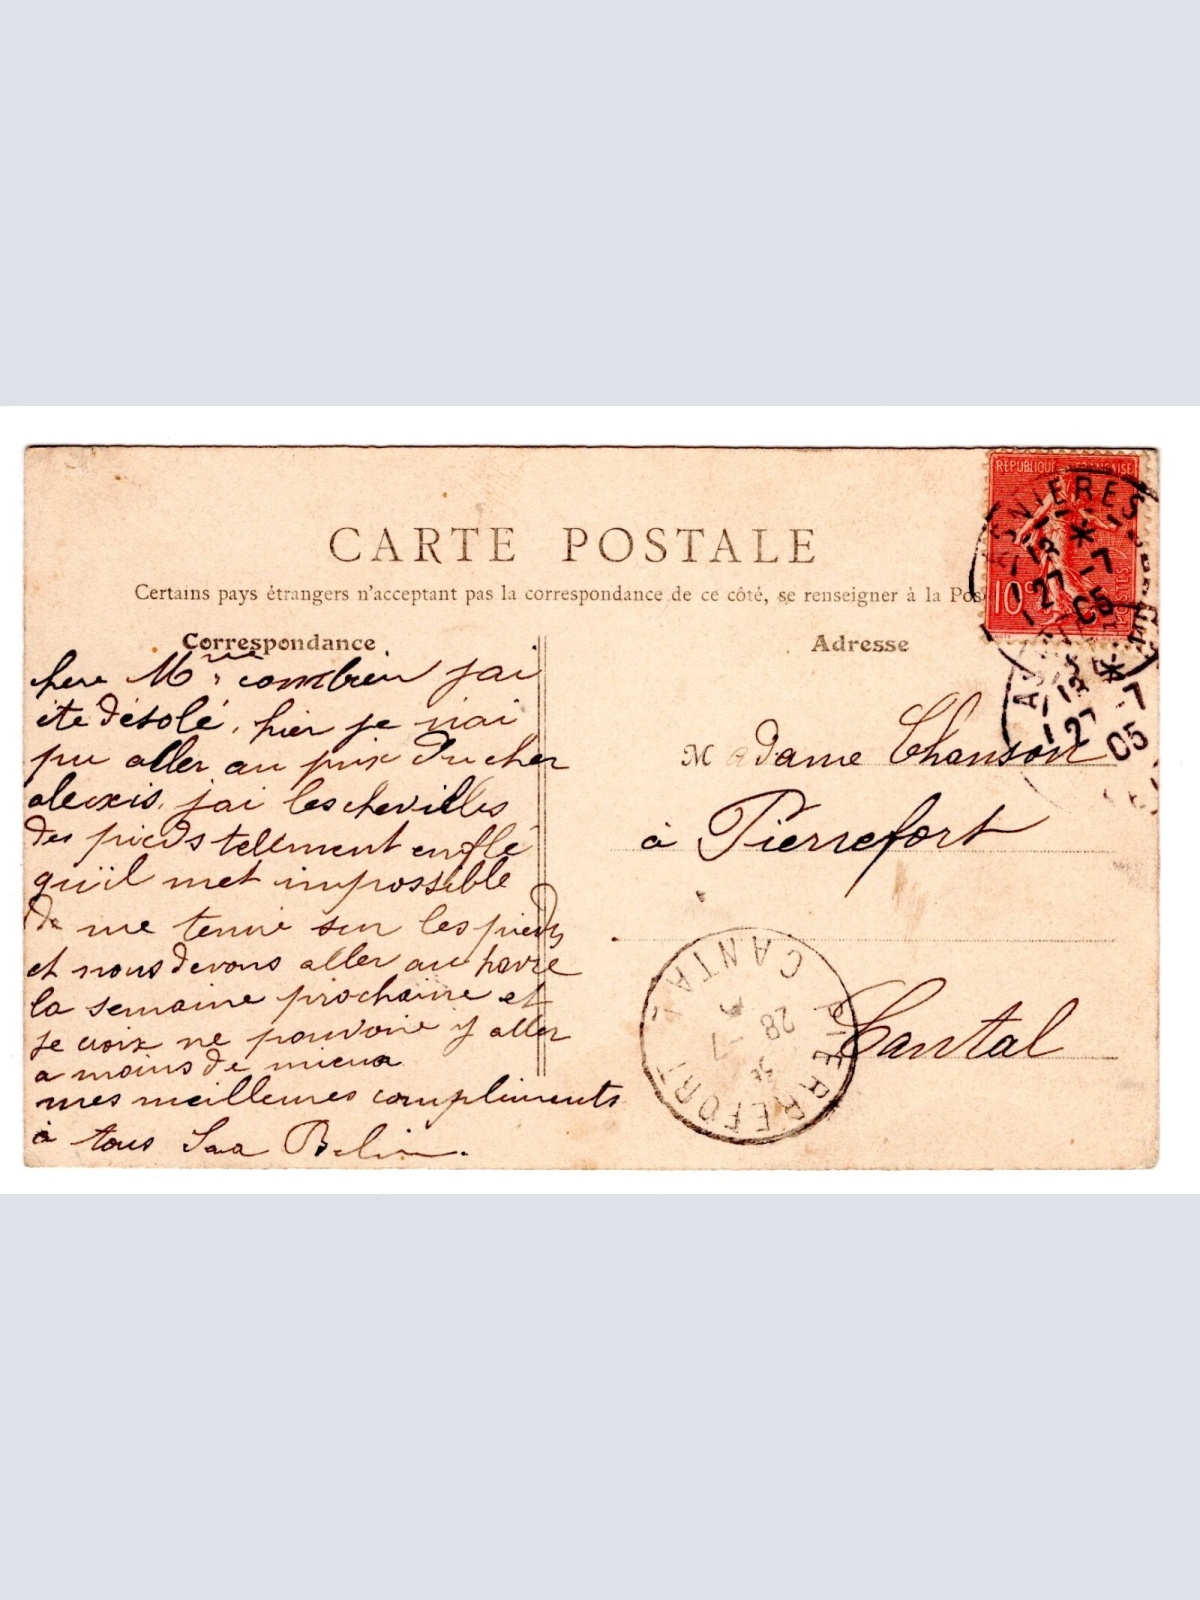 CARTE POSTALE
Certains pays étrangers n'acceptant pas la correspondance de ce côté, se renseigner à la Pos
Correspondance
chere Mme combien jai
ete désolé, hier je n'ai
pu aller au prix du cher
alexis, jai les chevilles
des pieds tellement enflé
qu'il met impossible
de me tenir sur les pieds
et nous devons aller au havre
la semaine prochaine et
je croix ne pouvoir y aller
a moins de mieux
mes meilleures compliments
à tous Belin.
Adresse
Madame Chanson
à Pierrefort
Cantal
REPUBLIQUE FRANÇAISE
10c
POSTES
ASNIERES
27 -7
05
27 -7
05
PIERREFORT
CANTAL
28 -7